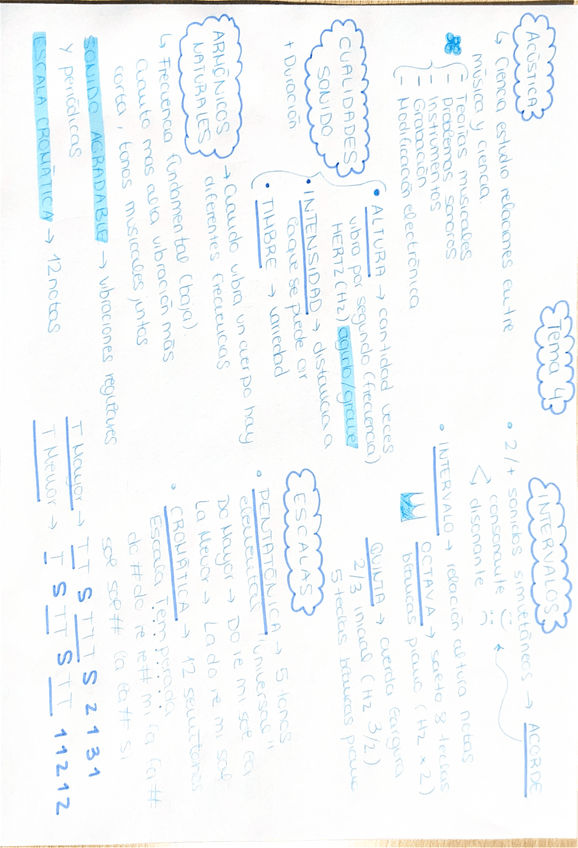 Tema 4
ACÚSTICA
↳ Ciencia estudio relaciones entre
música y ciencia.
- Teorías musicales
- Problemas sonoros
- Instrumentos
- Grabación
- Modificación electrónica
CUALIDADES
SONIDO
+ Duración
• ALTURA → cantidad veces
vibra por segundo (frecuencia)
HERTZ (Hz) agudo/grave
• INTENSIDAD → distancia a
la que se puede oir
• TIMBRE → variedad
ARMÓNICOS
NATURALES
→ Cuando vibra un cuerpo hay
diferentes frecuencias
↳ Frecuencia fundamental (baja)
Cuanto mas alta vibración más
corta, tonos musicales juntos
SONIDO AGRADABLE → vibraciones regulares
y periódicas
ESCALA CROMÁTICA → 12 notas
INTERVALOS
• 2/+ sonidos simultáneos → ACORDE
< consonante :)
disonante :(
• INTERVALO → relación altura notas
OCTAVA → salto 8 teclas
blancas piano (Hz x 2)
QUINTA → cuerda largura
2/3 inicial (Hz 3/2)
5 teclas blancas piano
ESCALAS
• PENTATÓNICA → 5 tonos
elemental "universal"
Do Mayor → Do re mi sol la
La Menor → La do re mi sol
• CROMÁTICA → 12 semitonos
Escala Temperada.
do # do re re# mi fa fa #
sol sol# la la# si
T Mayor → T T S T T T S 2 1 3 1
T Menor → T S T T S T T 1 1 2 1 2